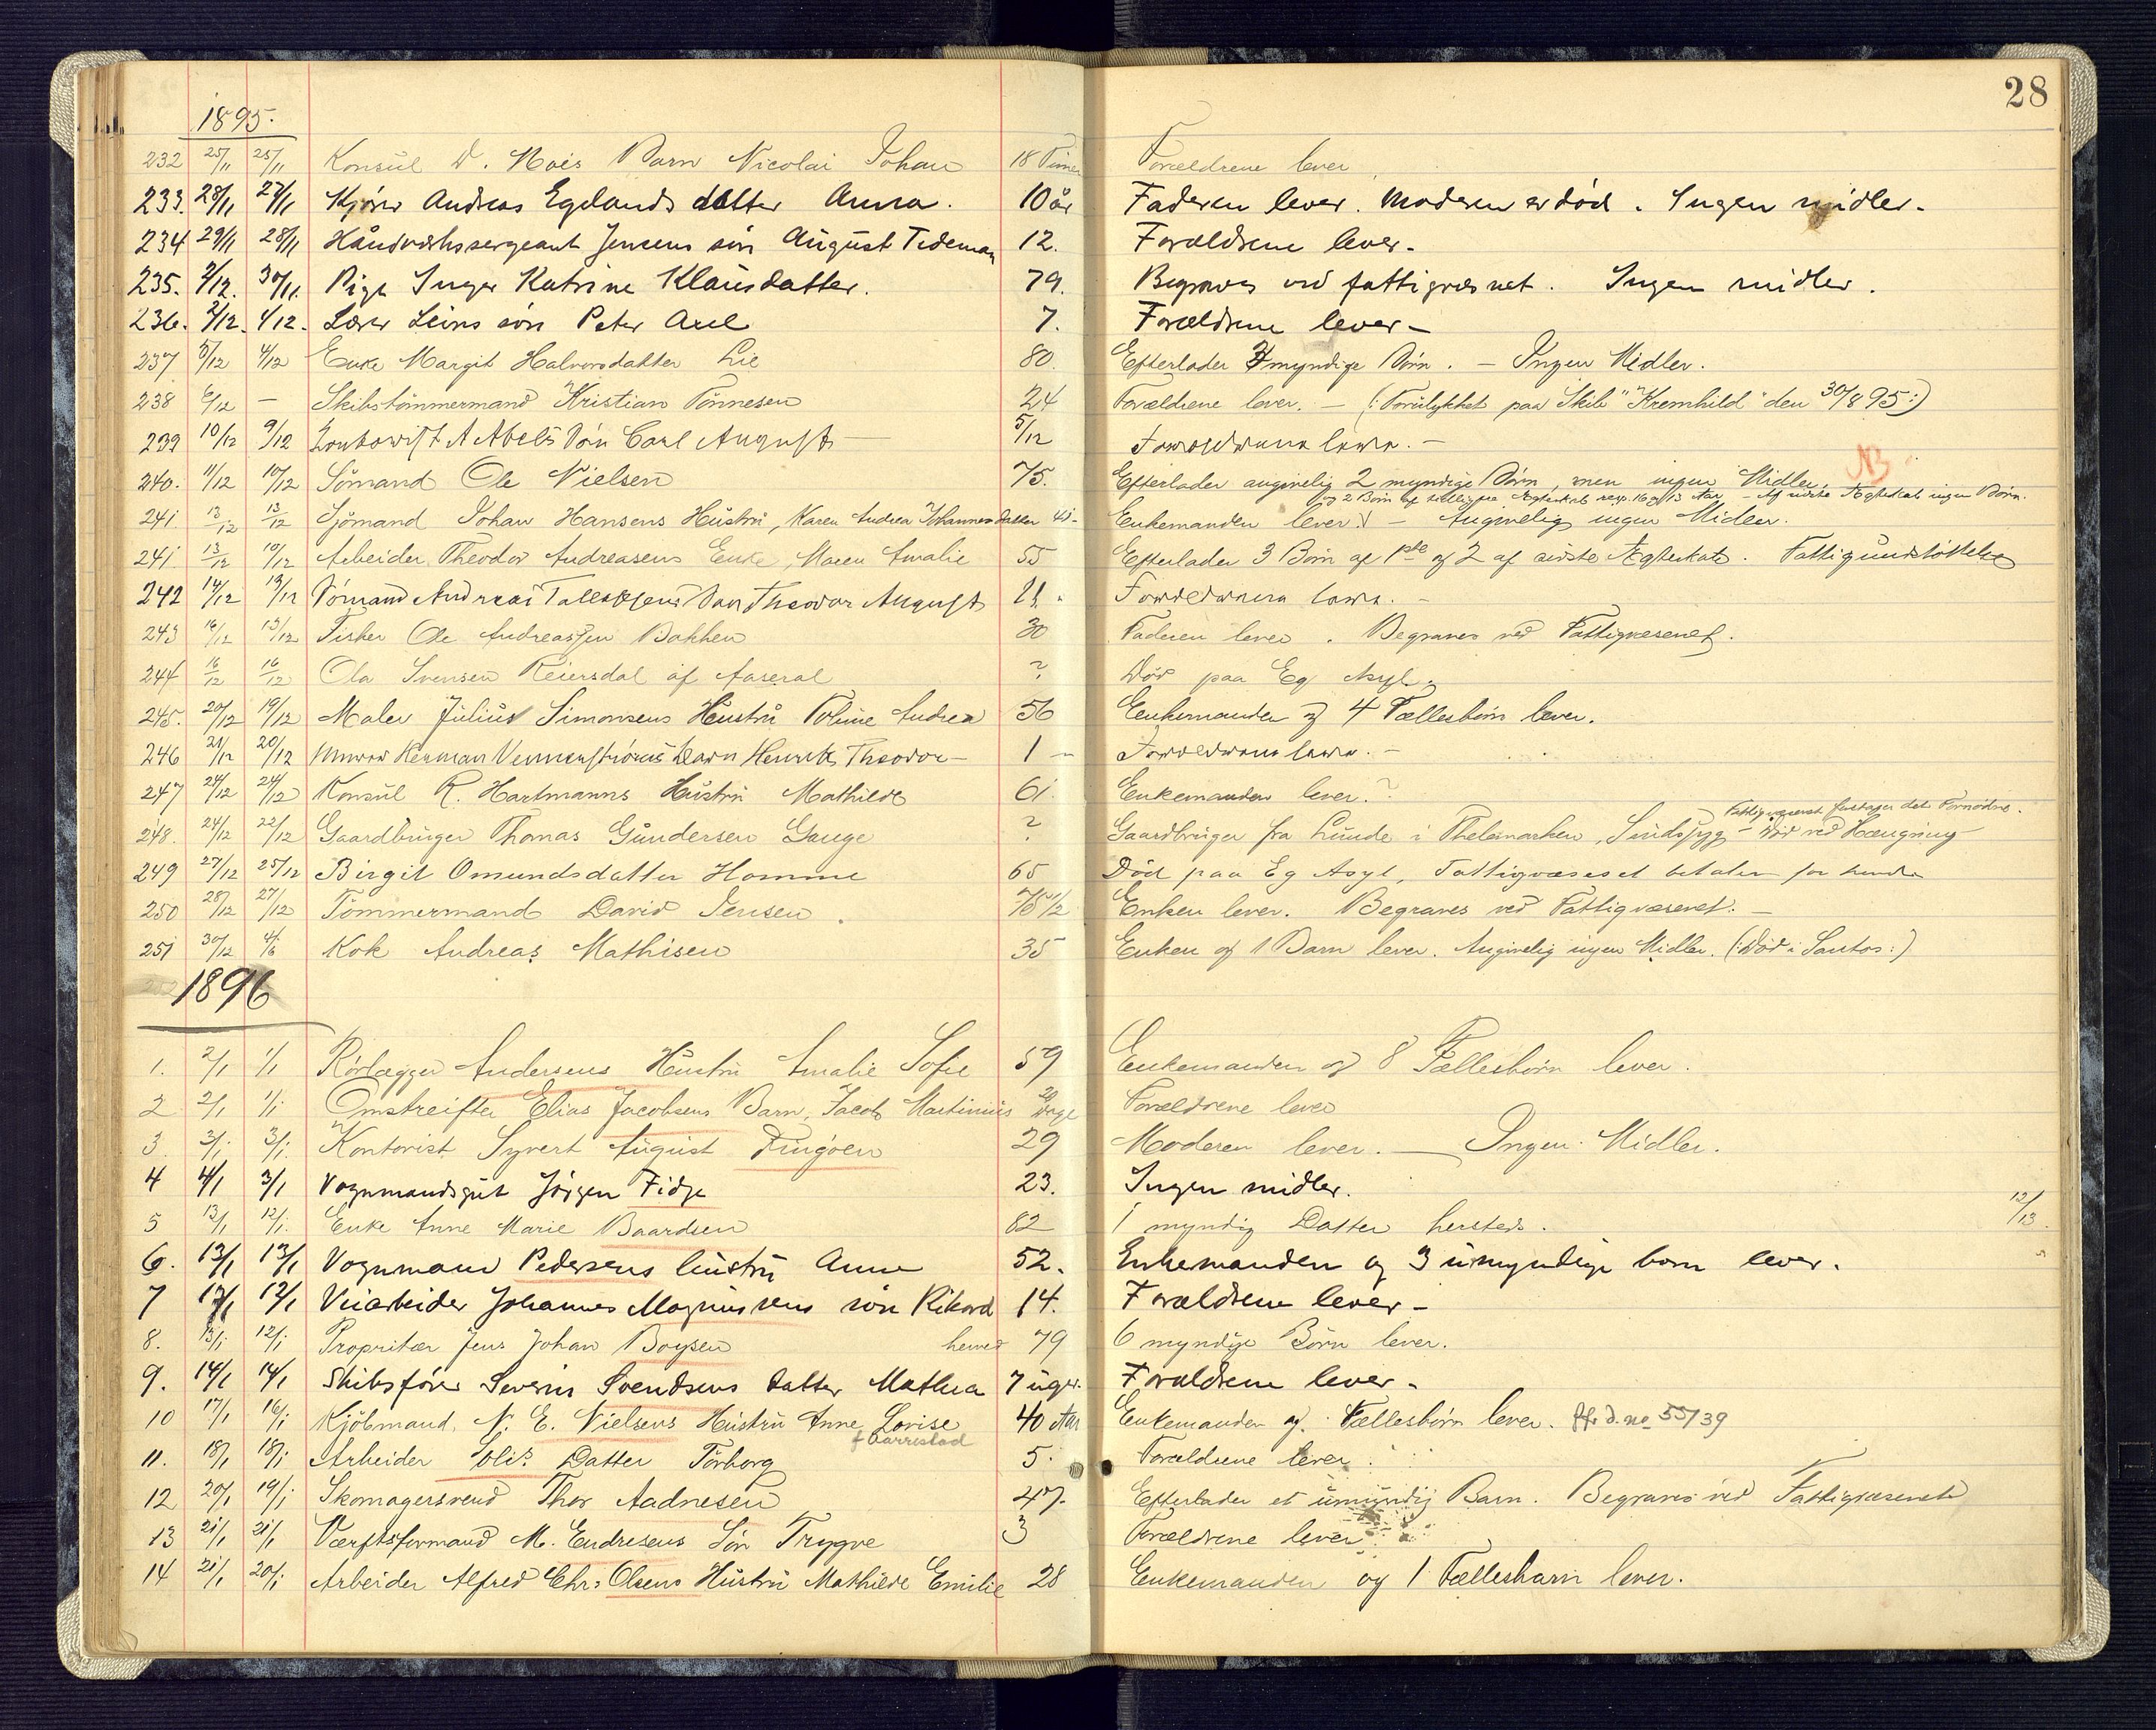 28
1895.
232 25/11 25/11 Konsul D. Moes Barn Nicolai Johan 18 Timer Forældrene lever
233. 28/11 27/11 Kjører Andreas Egelands datter Anna. 10 år Faderen lever. Moderen er död. Ingen midler.
234 29/11 28/11 Håndverkssergeant Jensens sön August Tideman 12. Forældrene lever.
235. 2/12. 30/11. Pige Inger Katrine Klausdatter. 79. Begraves ved fattigvæsnet. Ingen midler.
236. 2/12. 1/12. Lærer sön Peter Axel 7. Forældrene lever -
237 5/12 4/12 Enke Margit Halvorsdatter Lie 80. Efterlader myndige Börn. - Ingen Midler.
238 6/12 - Skibstömmermand Kristian Tönnesen 24 Forældrene lever. - (: Forulykket paa Skib "Kremhild" den 30/8 95 :)
239 10/12 9/12 A Abels Sön Carl August 5/12 Forældrene lever. -
NB
240. 11/12 10/12 Sömand Ole Nielsen 75. Efterlader angivelig 2 myndige Börn, men ingen Midler.
og 2 Börn af tidligere Ægteskab resp. 16 og 13 Aar - Af sidste Ægteskab ingen Börn.
241 13/12 13/12 Sjömand Johan Hansens Hustru, Karen Andrea Johannesdatter 41 - Enkemanden lever - Angivelig ingen Midler.
241 13/12 10/12 Arbeider Theodor Andreasens Enke, Maren Amalie 55 Efterlader 3 Börn af 1ste og 2 af sidste Ægteskab. Fattigunderstöttelse
242 14/12 13/12 Sömand Andreas Tallaksens Sön Theodor August 11. Forældrene lever. -
243 16/12 13/12 Fisker Ole Andreassen Bakken 30 Faderen lever. Begraves ved Fattigvæsenet.
244 16/12 16/12 Ola Svensen Reiersdal af Aaseral ? Död paa Eg Asyl.
245. 20/12 19/12 Maler Julius Simonsens Hustru Andrea 56 Enkemanden og 4 Fællesbörn lever.
246 21/12 20/12 Murer Herman Vennerströms Barn Henrik Theodor - 1 - Forældrene lever. -
247 24/12 24/12 Konsul R. Hartmanns Hustru Mathilde 61. Enkemanden lever.
Fattigvæsenet foretager det Fornödne.
248. 24/12 22/12 Gaardbruger Thomas Gundersen Gauge ? Gaardbruger fra Lunde i Thelemarken, Sindssyg - Död ved Hængning
249 27/12 25/12 Birgit Omundsdatter Homme 65 Död paa Eg Asyl, Fattigvæsenet betaler for hende
250 28/12 27/12 Tömmermand David Jensen. 75 1/2 Enken lever. Begraves ved Fattigvæsenet. -
251 30/12 4/6 Kok Andreas Mathisen 35 Enken og 1 Barn lever. Angivelig ingen Midler. (: Död i Santos :)
1896
1. 2/1 1/1 Rörlægger Andersens Hustru Amalie Sofie 59 Enkemanden og 8 Fællesbörn lever.
2 2/1 1/1 Omstreifer Elias Jacobsens Barn, Jacob Martinius 20 Dage Forældrene lever
3. 3/1 3/1. Kontorist Syvert August Dingoen 29 Moderen lever. - Ingen Midler.
4 4/1 3/1 Vognmandsgut Jörgen Fidje 23. Ingen midler.
5 13/1 12/1. Enke Anne Marie Baardsen 82 1 myndig Datter hersteds. 12/13.
6. 13/1 13/1 Vognmand Pedersens hustru Anne 52. Enkemanden og 3 umyndige born lever.
7 13/1 12/1 Veiarbeider Johannes Magnussens sön Rikard 14. Forældrene lever -
8. 13/1 12/1 Proprietær Jens Johan Boysen herved 79 6 myndige Börn lever.
9. 14/1 14/1 Skibsförer Severin Svendsens datter Mathea 7 uger. Forældrene lever.
10 17/1 16/1 Kjöbmand N. E. Nielsens Hustru Anne Lovise 40 Aar Enkemanden og Fællesbörn lever. jfr. d. no 55/39
f Aarrestad
11. 18/1 18/1 Arbeider Datter Torborg 5. Forældrene lever.
12 20/1 19/1 Skomagersvend Thor Aadnesen 47. Efterlader et umyndig Barn. Begraves ved Fattigvæsenet
13 21/1 21/1 Værftsformand M. Endresens Sön Trygve 3 Forældrene lever.
14 21/1 20/1 Arbeider Alfred Chr: Olsens Hustru Mathilde Emilie 28 Enkemanden og 1 Fællesbarn lever.